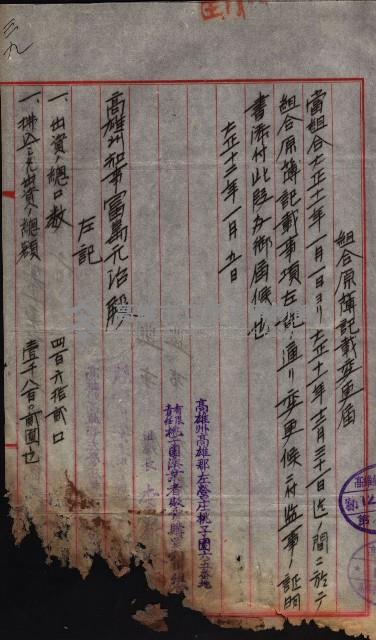 三九
組合原簿記載変更届
當組合大正十一年一月一日ヨリ大正十一年十二月三十一日迄ノ間ニ於テ
組合原簿記載事項左記ノ通リ変更候ニ付監事ノ証明
書添付此段及御届候也
大正十二年一月九日
高雄州高雄郡左營庄桃子園
有限責任桃子園漁業者
高雄州知事富島元治殿
左記
一、出資ノ總口数 四百六拾貳口
一、拂込ミ出資ノ總額 壹千八百〇貳圓也